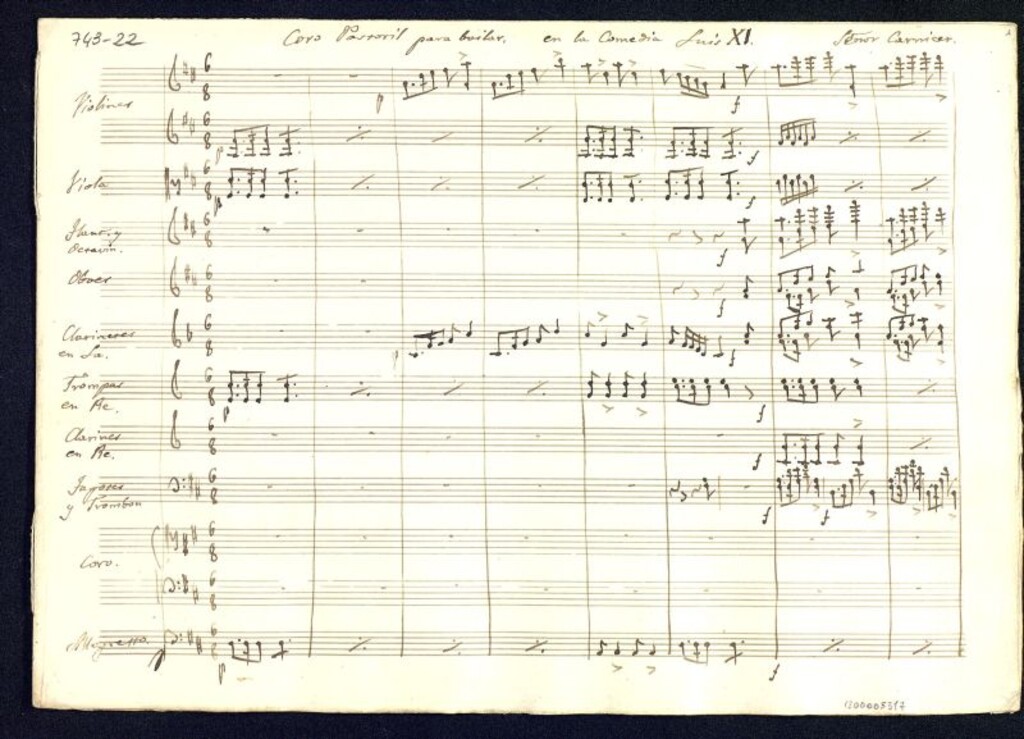 743-22 Coro Pastoril para bailar, en la Comedia Luis XI. Señor Carnicer.
Violines
Viola
Flaut. y
Octavin.
Oboes
Clarinetes
en La.
Trompas
en Re.
Clarines
en Re.
Fagotes
y Trombon
Coro.
Allegretto.
1200008317